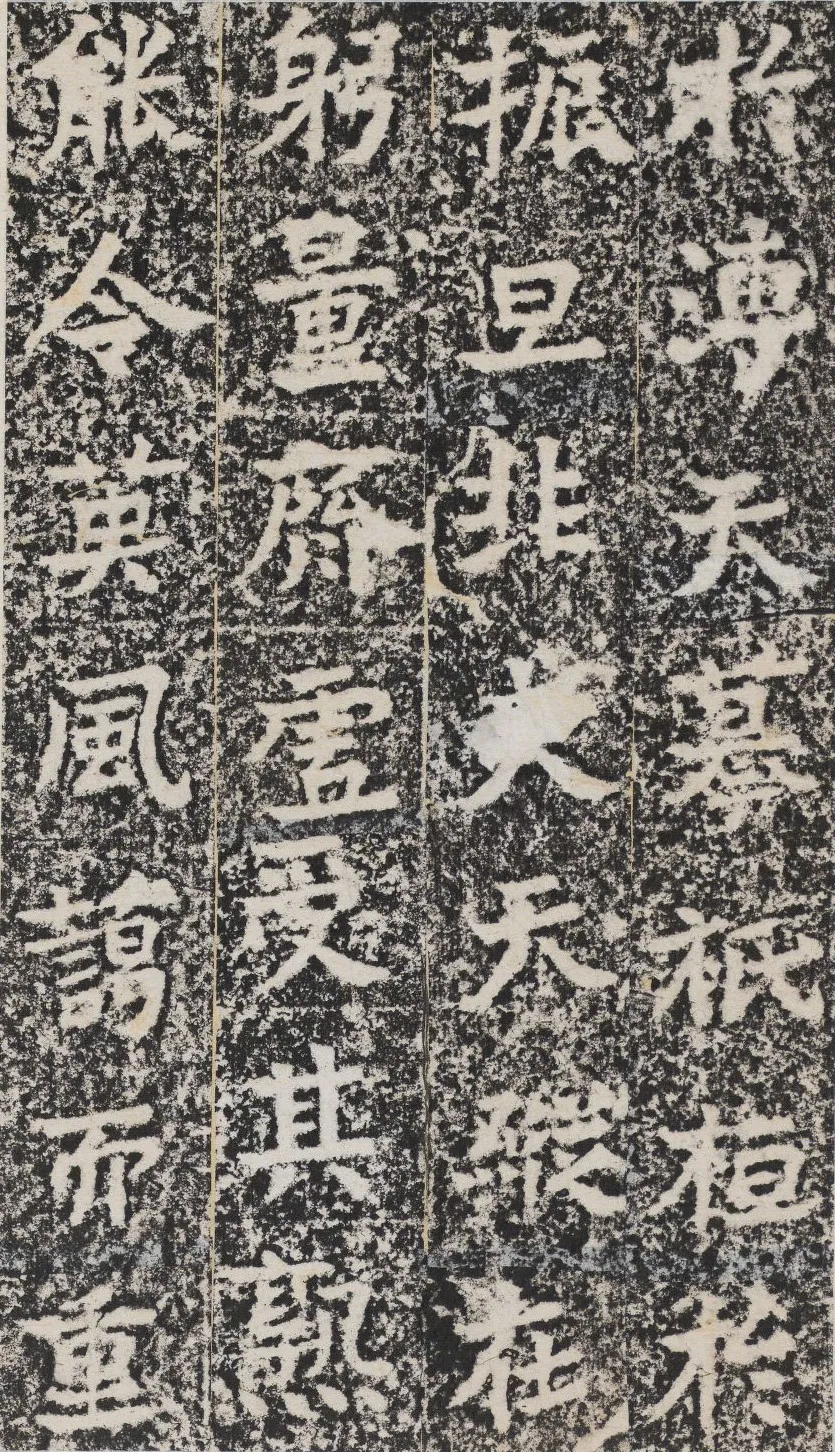 於溥天摹祇桓於
振旦非夫天縱在
躬量齊虛受其孰
能令英風藹而重